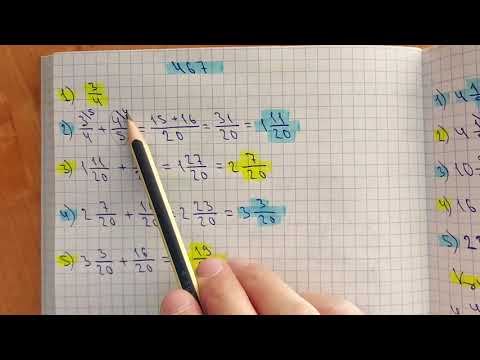 467
1) 3/4
2) 3^5/4 + 4^4/5 = 15+16/20 = 31/20 = 1 11/20
3) 1 11/20 + = 1 27/20 = 2 7/20
4) 2 7/20 + /20 = 2 23/20 = 3 3/20
5) 3 3/20 + 16/20 = 19
1) 4
2) 4
3) 10
4) 16
5)